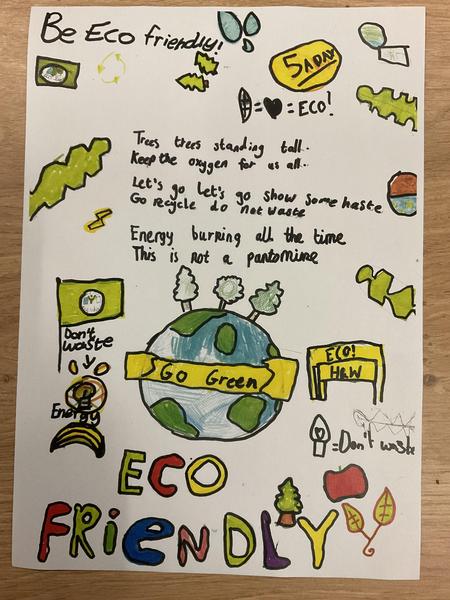 Be Eco friendly!
5 A DAY
= = ECO!
Trees trees standing tall..
Keep the oxygen for us all..
Let's go let's go show some haste
Go recycle do not waste
Energy burning all the time
This is not a pantomime
Don't
waste
Energy
Go Green
ECO!
H&W
=Don't waste
ECO
FRiENDLY